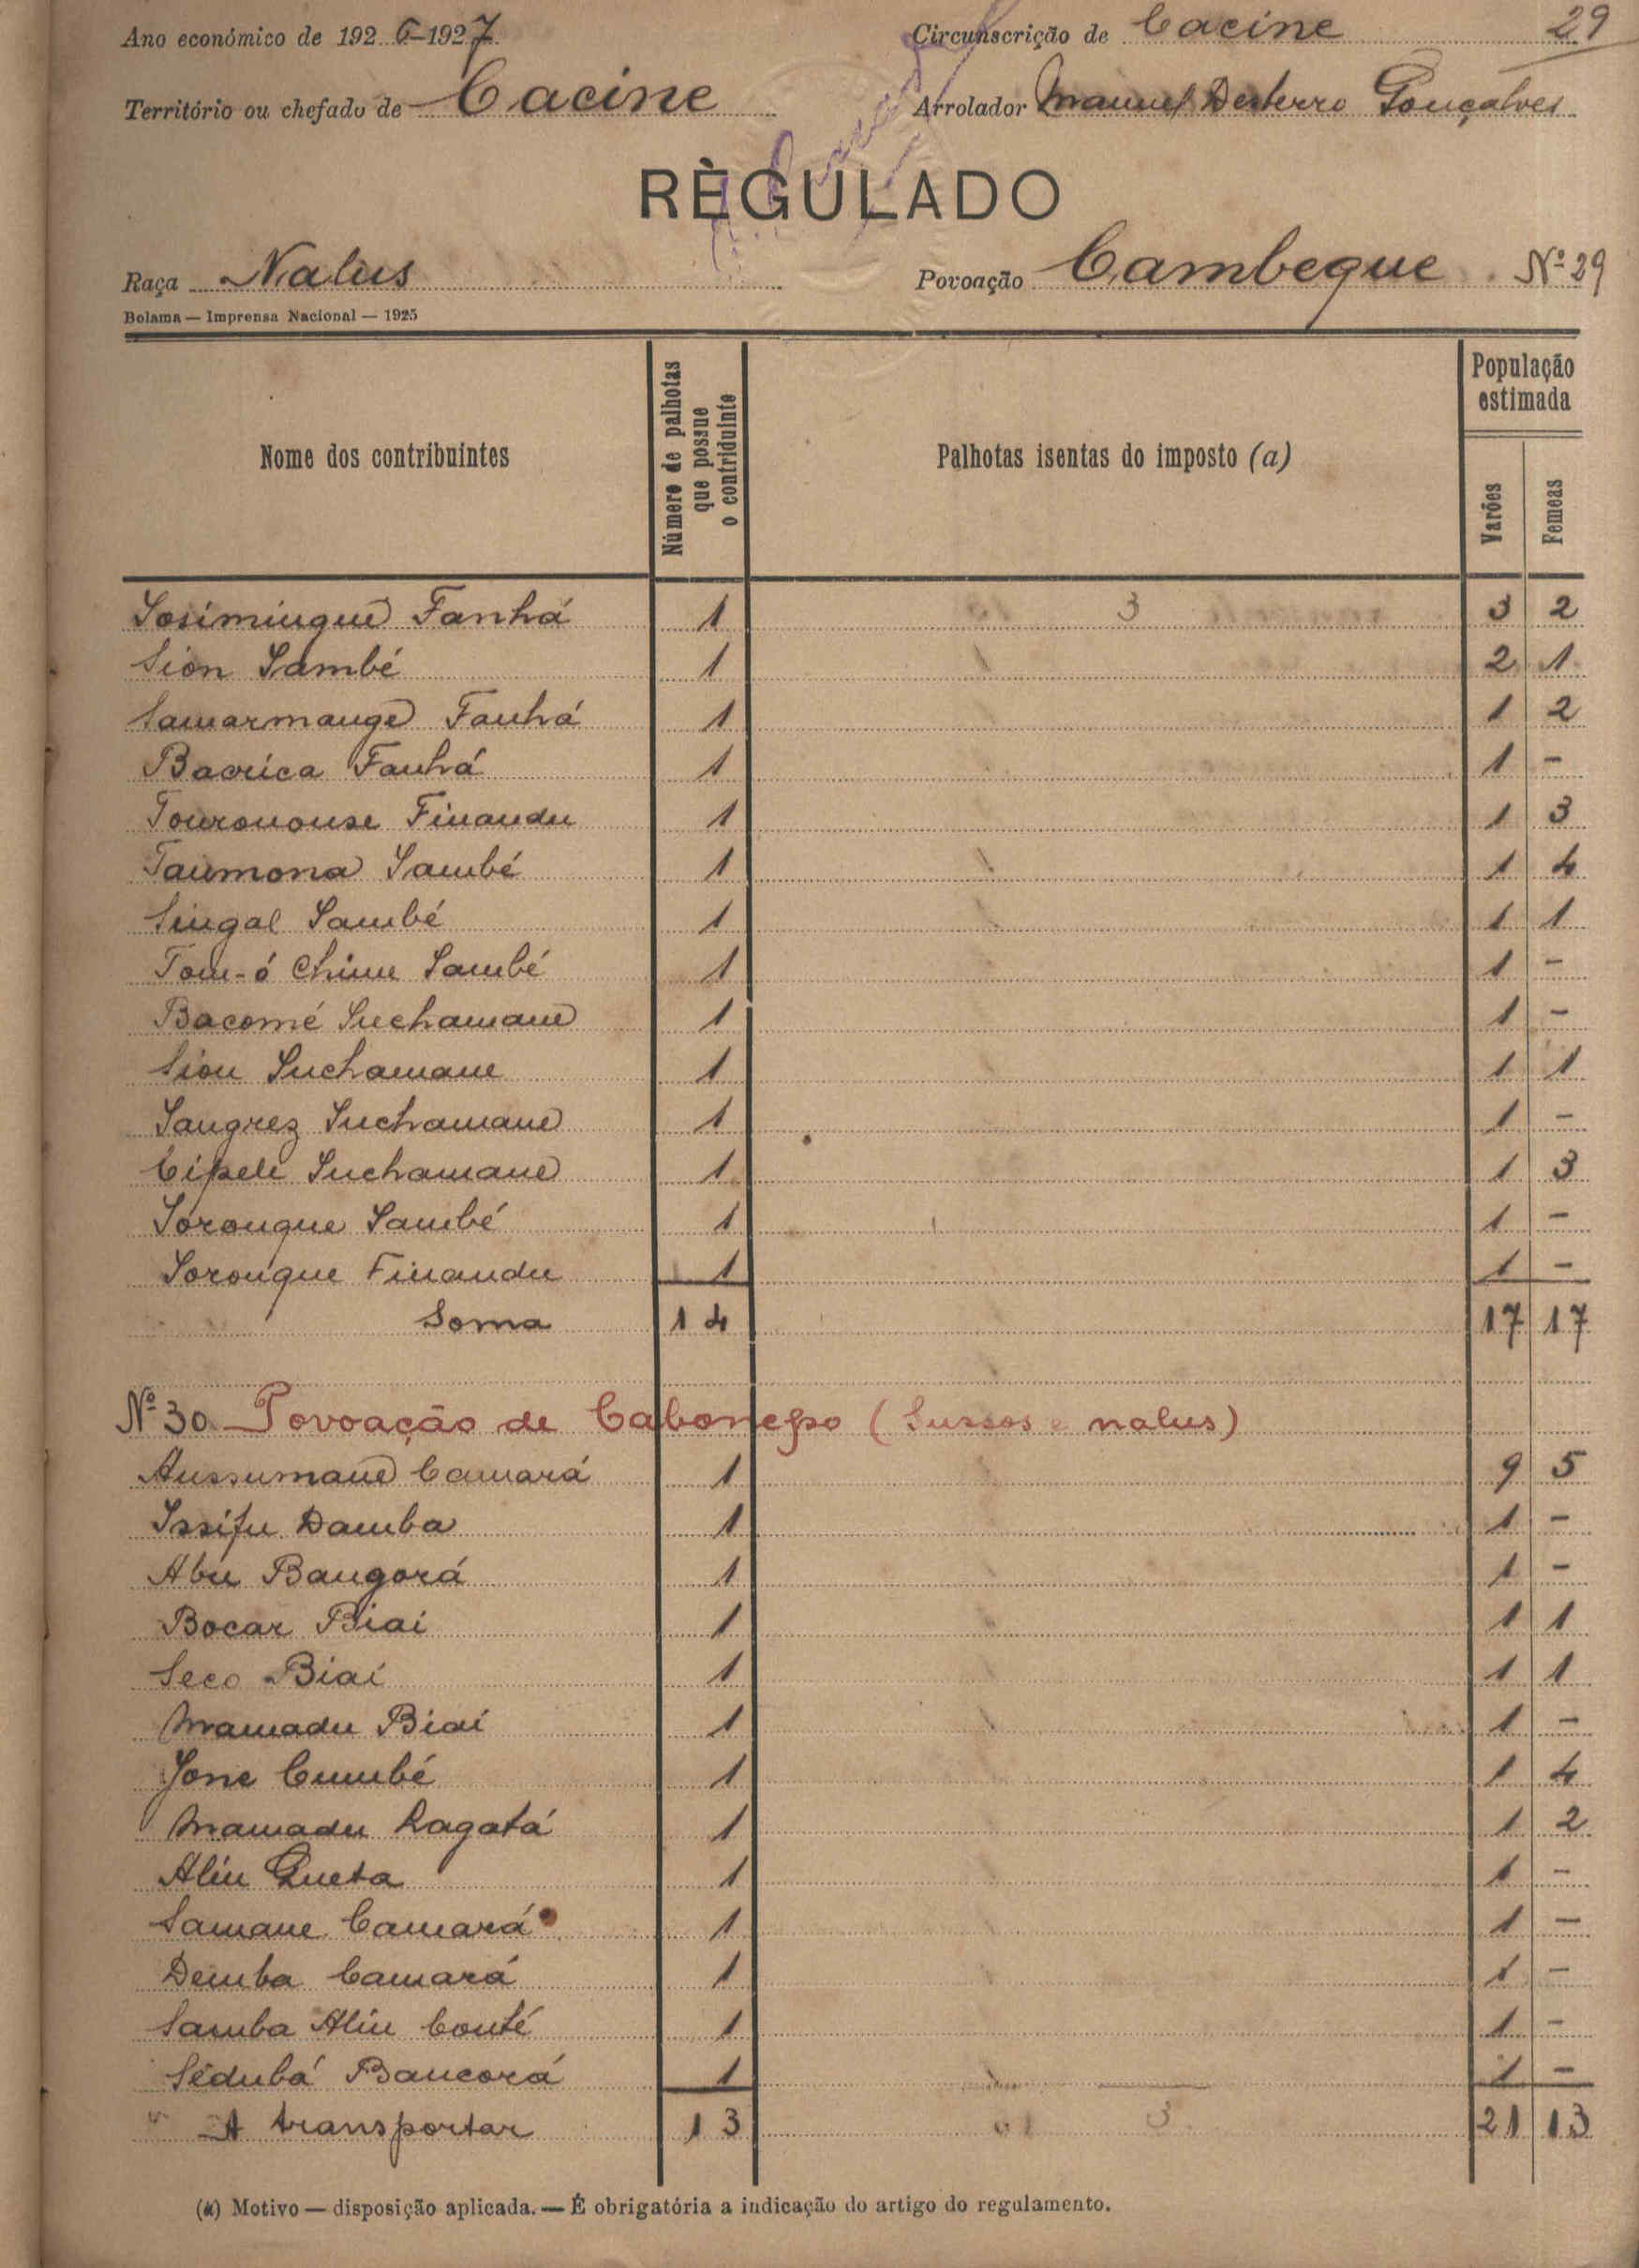 Ano económico de 1926-1927 Circunscrição de Cacine 29
Território ou chefado de Cacine Arrolador Manuel Desterro Gonçalves
RÈGULADO
Raça Nalus Povoação Cambeque Nº 29
Bolama — Imprensa Nacional — 1925
Nome dos contribuintes Número de palhotas que possue o contriduinte Palhotas isentas do imposto (a) População estimada Varões Femeas
Fanhá 1 3 3 2
Sion Sambé 1 2 1
Fanhá 1 1 2
Fanhá 1 1 -
Finandu 1 1 3
Taumona Sambé 1 1 4
Singal Sambé 1 1 1
Tom-ó Chime Sambé 1 1 -
Bacomé Suchamane 1 1 -
Sion Suchamane 1 1 1
Sangrez Suchamane 1 1 -
Cipele Suchamane 1 1 3
Soronque Sambé 1 1 -
Soronque Finandu 1 1 -
Soma 14 17 17
Nº 30 Povoação de (Sussos e nalus)
Aussumane Camará 1 9 5
Issifu Damba 1 1 -
Abu Bangorá 1 1 -
Bocar Biai 1 1 1
Seco Biai 1 1 1
Mamadu Biai 1 1 -
Cumbé 1 1 4
Mamadu Ragatá 1 1 2
Aliu Queta 1 1 -
Samane Camará 1 1 -
Demba Camará 1 1 -
Samba Aliu Conté 1 1 -
Sédubá Bancorá 1 1 -
A transportar 13 3 21 13
(a) Motivo — disposição aplicada. — É obrigatória a indicação do artigo do regulamento.